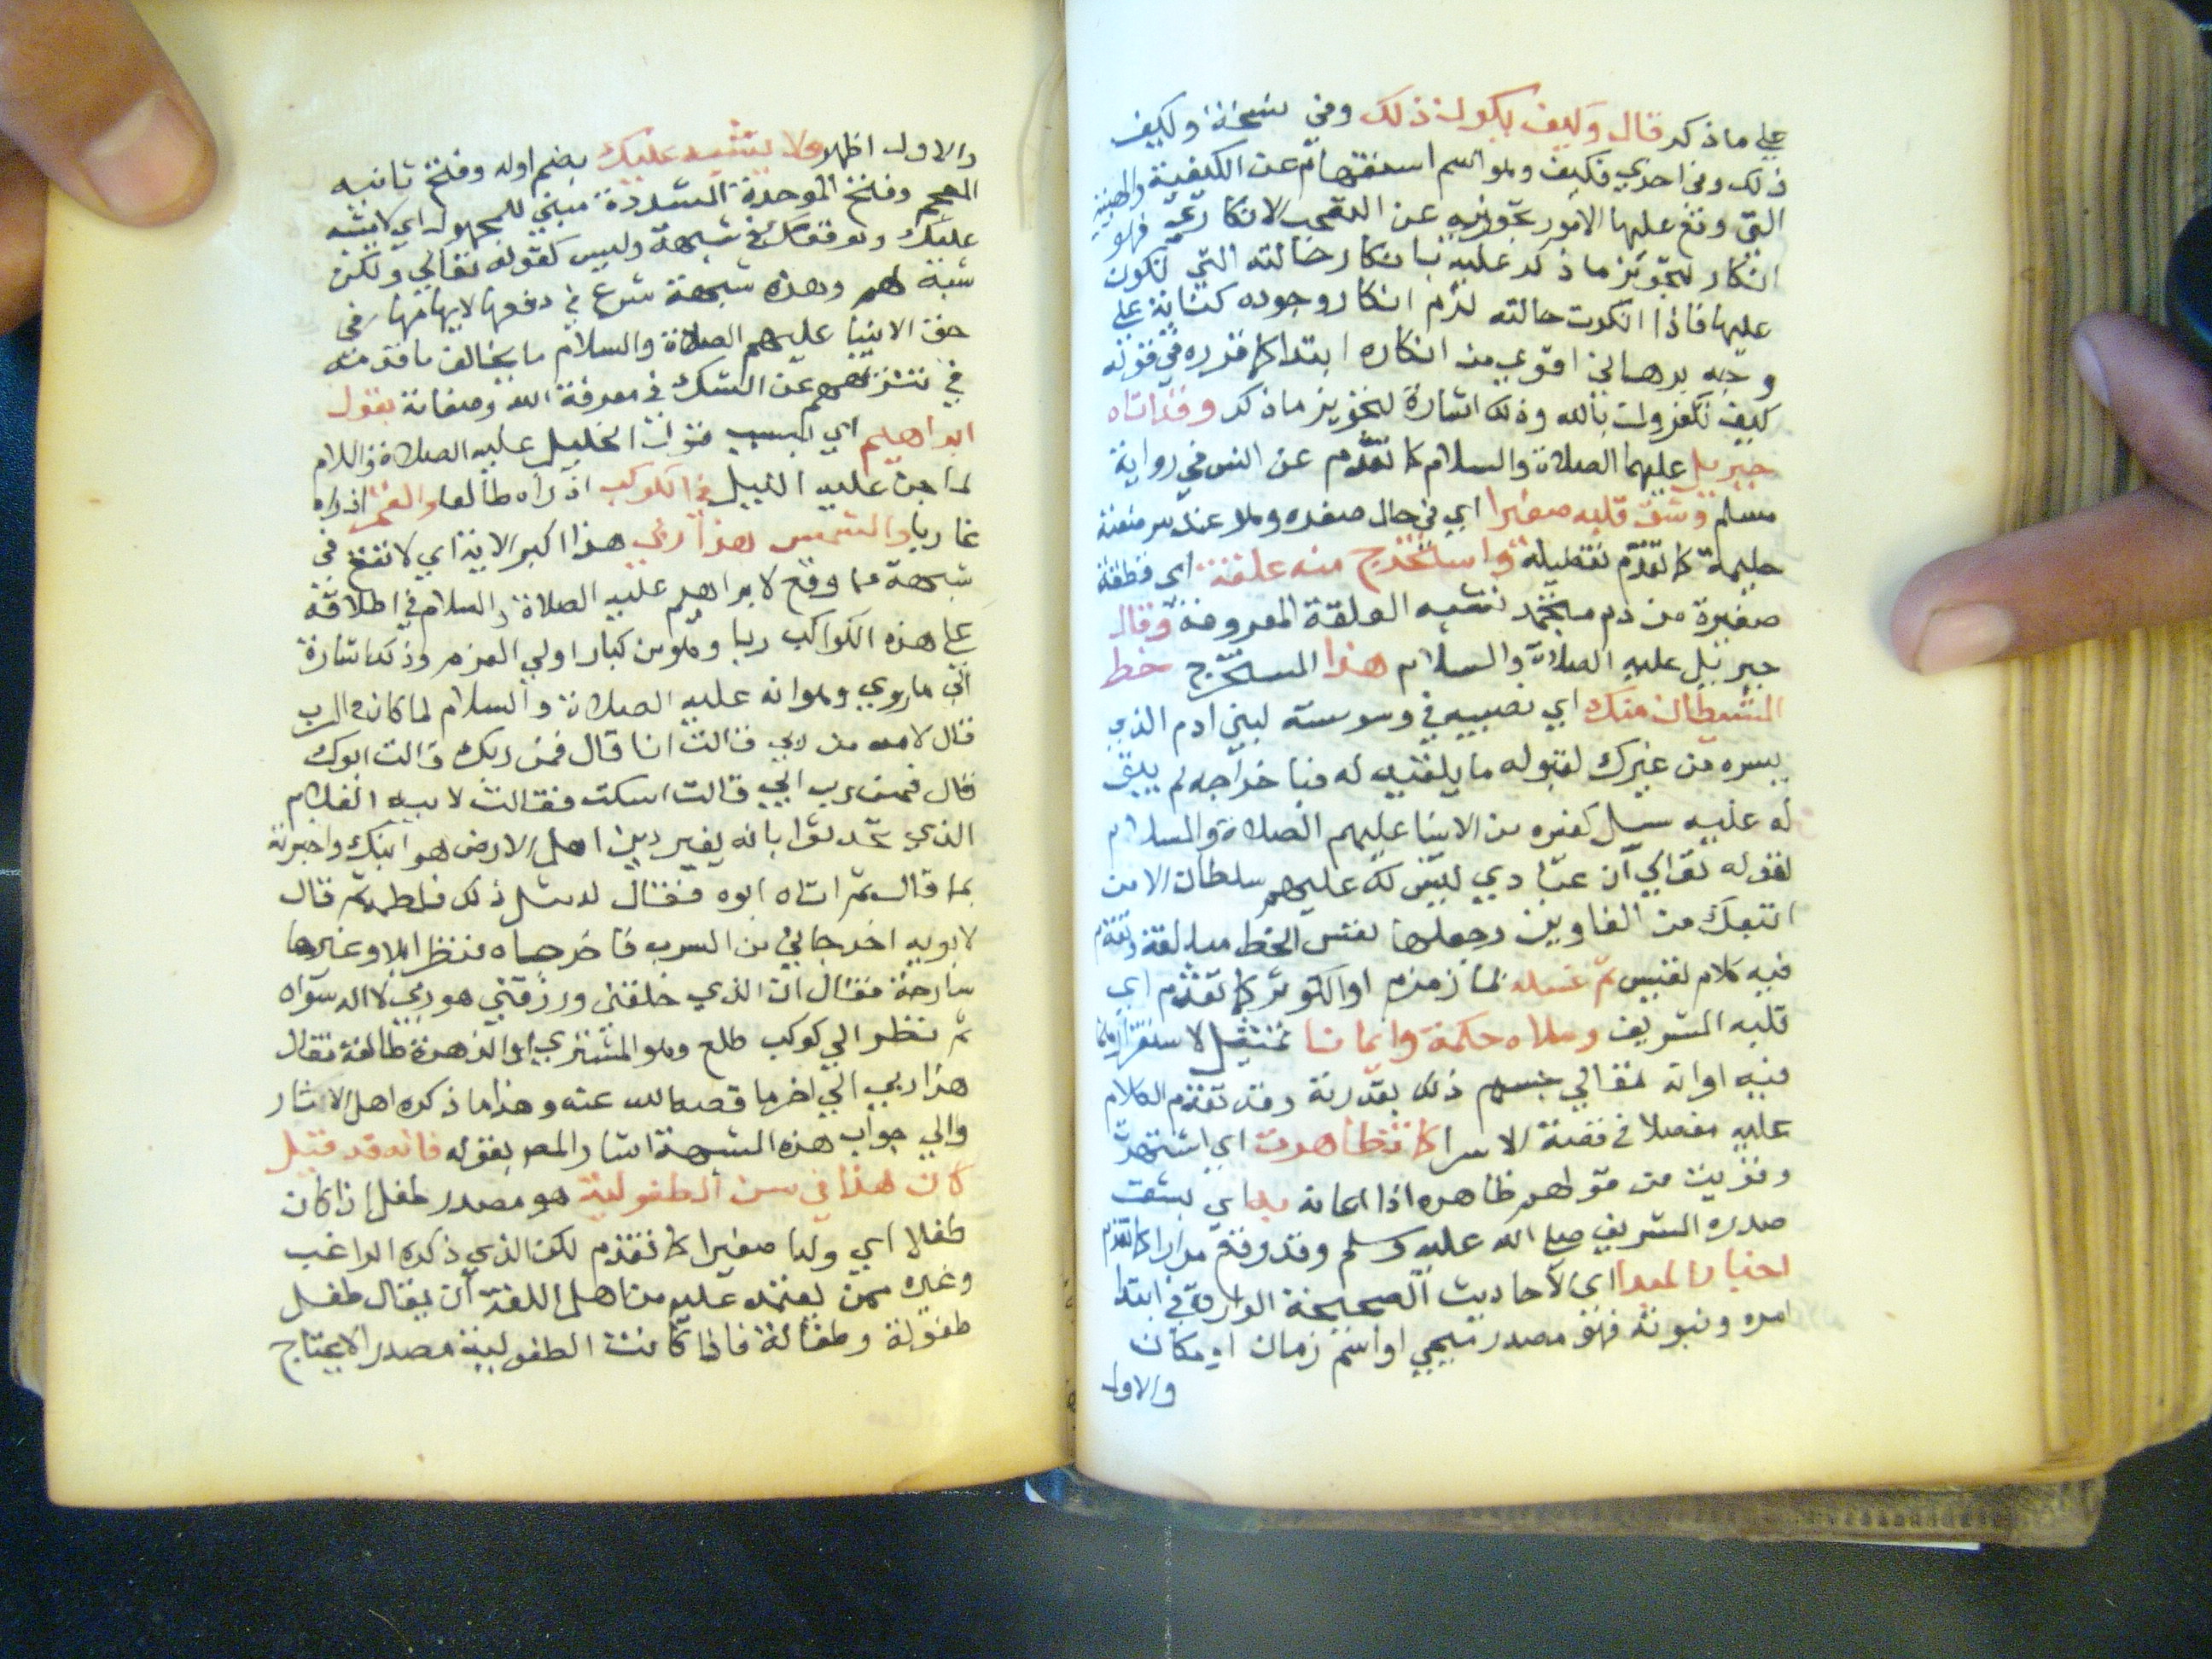 على ما ذكر قال وكيف يكون ذلك وفي نسخة وكيف
ذلك وفي اخري فكيف وهو اسم استفهام عن الكيفية والهيئة
التي وقع عليها الامور تجوز به عن التعجب الانكاري فهو
انكار لتجويز ما ذكر عليه بانكار حالته التي تكون
عليها فاذا انكرت حالته لزم انكار وجوده كناية على
وجه برهاني اقوي من انكاره ابتدا كما قرره في قوله
كيف تكفرون بالله وذلك اشارة لتجويز ما ذكر وقد اتاه
جبريل عليهما الصلاة والسلام كما تقدم عن انس في رواية
مسلم وشق قلبه صغيرا اي في حال صغره وهو عند مرضعته
حليمة كما تقدم تفصيله واستخرج منه علقة اي قطعة
صغيرة من دم متجمد تشبه العلقة المعروفة وقال
جبريل عليه الصلاة والسلام هذا المستخرج حظ
الشيطان منك اي نصيبه في وسوسته لبني ادم الذي
يسره من غيرك لقبوله ما يلقيه له فبا خراجه لم يبق
له عليه سبيل كغيره من الانبيا عليهم الصلاة والسلام
لقوله تعالي ان عبادي ليس لك عليهم سلطان الا من
اتبعك من الغاوين وجعلها نفس الحظ مبالغة وتقدم
فيه كلام نفيس ثم غسله بماء زمزم او الكوثر كما تقدم اي
قلبه الشريف وملاه حكمة وايمانا تمثيل لاستقرارهما
فيه او انه تعالي جسم ذلك بقدرته وقد تقدم الكلام
عليه مفصلا في قصة الاسرا كما تظاهرت اي اشتهرت
وتقويت من قولهم ظاهره اذا اعانه به اي بشق
صدره الشريف صلى الله عليه وسلم وقد وقع مرارا كما تقدم
اخبار المبدا اي الاحاديث الصحيحة الواردة في ابتدا
امره ونبوته فهو مصدر ميمي او اسم زمان او مكان
والاول
والاول اظهر ولا يشبه عليك بضم اوله وفتح ثانيه
المعجم وفتح الموحدة المشددة مبني للمجهول اي لا يشبه
عليك ويوقعك في شبهة وليس كقوله تعالي ولكن
شبه لهم وهذه شبهة شرع في دفعها لايهامها في
حق الانبيا عليهم الصلاة والسلام ما يخالف ما قدمته
في تنزههم عن الشك في معرفة الله وصفاته بقول
ابراهيم اي بسبب قول الخليل عليه الصلاة والسلام
لما جن عليه الليل في الكوكب اذ راه طالعا والقمر اذ راه
غاربا والشمس هذا ربي هذا اكبر الاية اي لا تقع في
شبهة مما وقع لابراهيم عليه الصلاة والسلام في اطلاقه
على هذه الكواكب ربا وهو من كبار اولي العزم وذكر اشارة
الي ما روي وهو انه عليه الصلاة والسلام لما كان في السرب
قال لامه من ربي قالت انا قال فمن ربك قالت ابوك
قال فمن رب ابي قالت اسكت فقالت لابيه الغلام
الذي تحدثوا بانه يغير دين اهل الارض هو ابنك واخبرته
بما قال ثم اتاه ابوه فقال له مثل ذلك فلطمه ثم قال
لابويه اخرجاني من السرب فاخرجاه فنظر ابلا وغيرها
سارحة فقال ان الذي خلقني ورزقني هو ربي لا اله سواه
ثم نظر الي كوكب طلع وهو المشتري او الزهرة طالعة فقال
هذا ربي الي اخر ما قصه الله عنه وهذا ما ذكره اهل الاثار
والي جواب هذه الشبهة اشار المص بقوله فانه قد قيل
كان هذا في سن الطفولية هو مصدر طفل اذا كان
طفلا اي ولدا صغيرا كما تقدم لكن الذي ذكره الراغب
وغيره ممن يعتمد عليه من اهل اللغة ان يقال طفل
طفولة وطفالة فاذا كانت الطفولية مصدر الا يحتاج